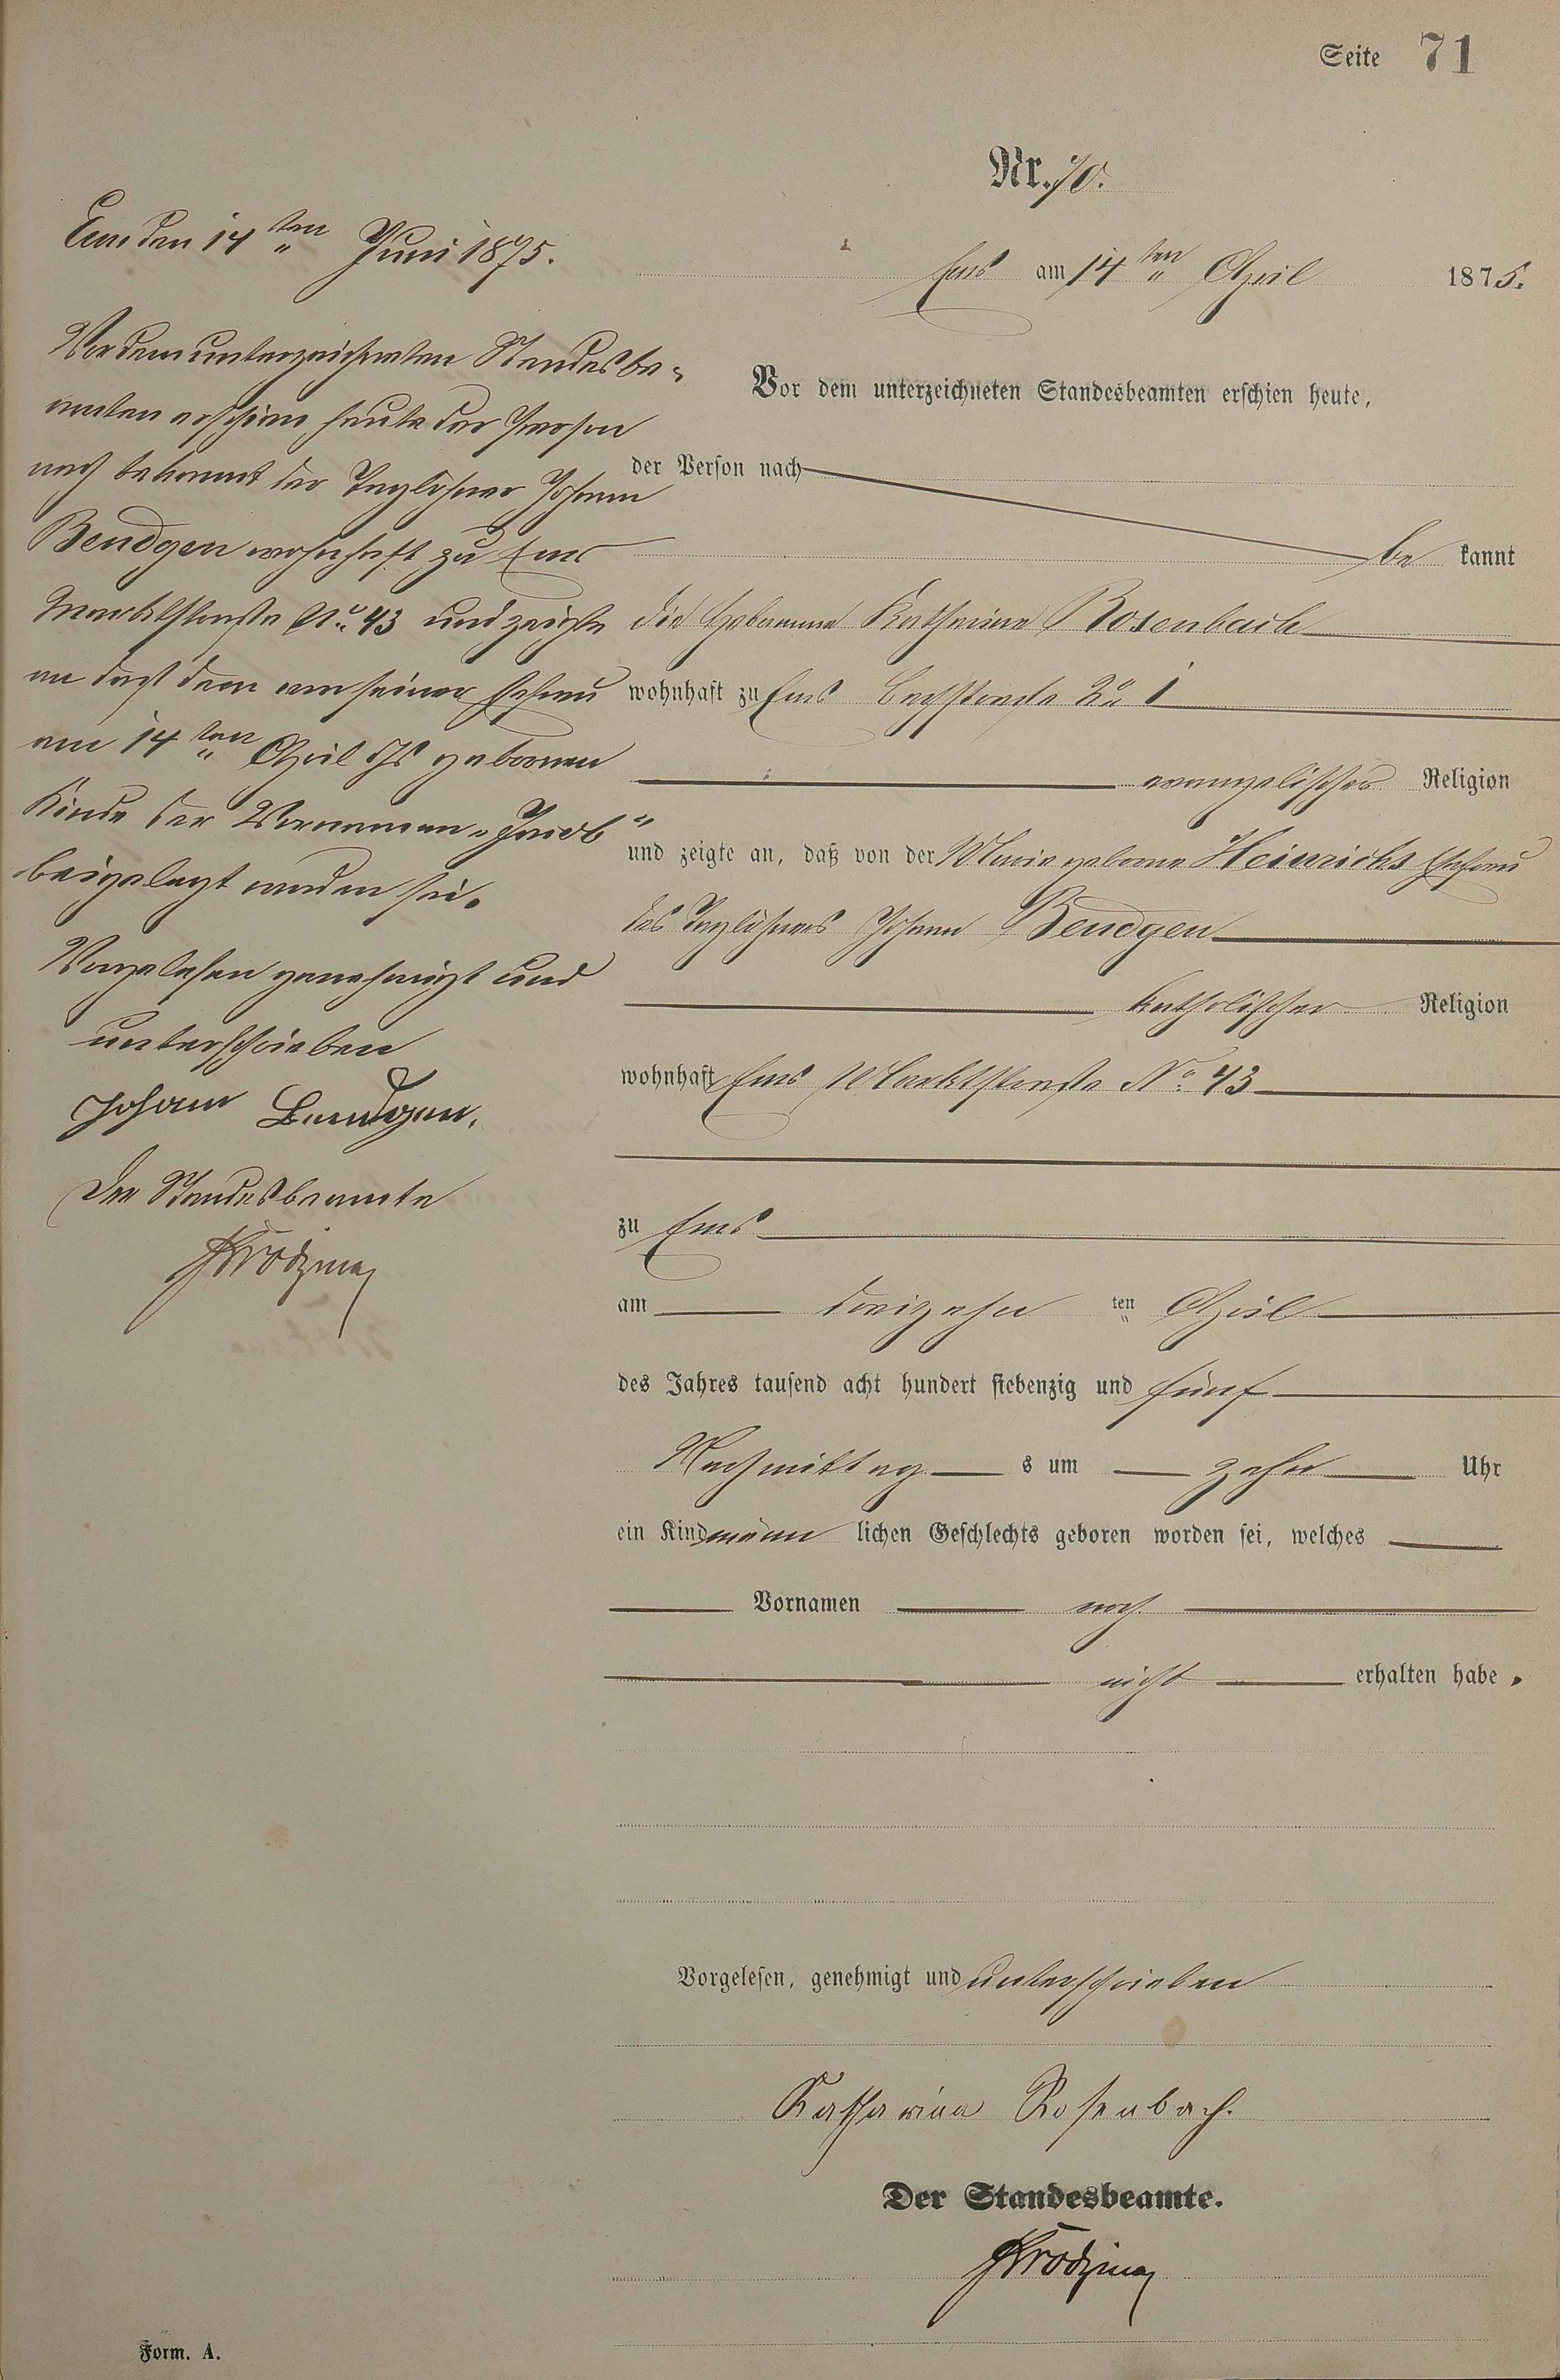 Seite 71
Nr. 70.
Ems den 14ten Juni 1875.
Vor dem unterzeichneten Standesbe-
amten erschien heute der Person
nach bekannt der Taglöhner Johann
Bendgen wohnhaft zu Ems
Marktstraße No. 43 und zeigte
an daß dem von seiner Ehefrau
am 14ten April ds Js geborenen
Kinde der Vornamen „Jacob“
beigelegt worden sei.
Vorgelesen genehmigt und
unterschrieben
Johann Bendgen.
Der Standesbeamte
Ems am 14ten April 1875.
Vor dem unterzeichneten Standesbeamten erschien heute,
der Person nach
be kannt
die Hebamme Katharina Rosenbach
wohnhaft zu Ems Bachstraße No 1
evangelischer Religion
und zeigte an, daß von der Maria geborne Heinrichs Ehefrau
des Taglöhners Johann Bendgen
katholischer Religion
wohnhaft Ems Marktstraße No. 43
zu Ems
am dreizehn ten April
des Jahres tausend acht hundert siebenzig und fünf
Nachmittag s um zehn Uhr
ein Kind männ lichen Geschlechts geboren worden sei, welches
Vornamen noch
nicht erhalten habe.
Vorgelesen, genehmigt und unterschrieben
Katharina Rosenbach.
Der Standesbeamte.
Form. A.